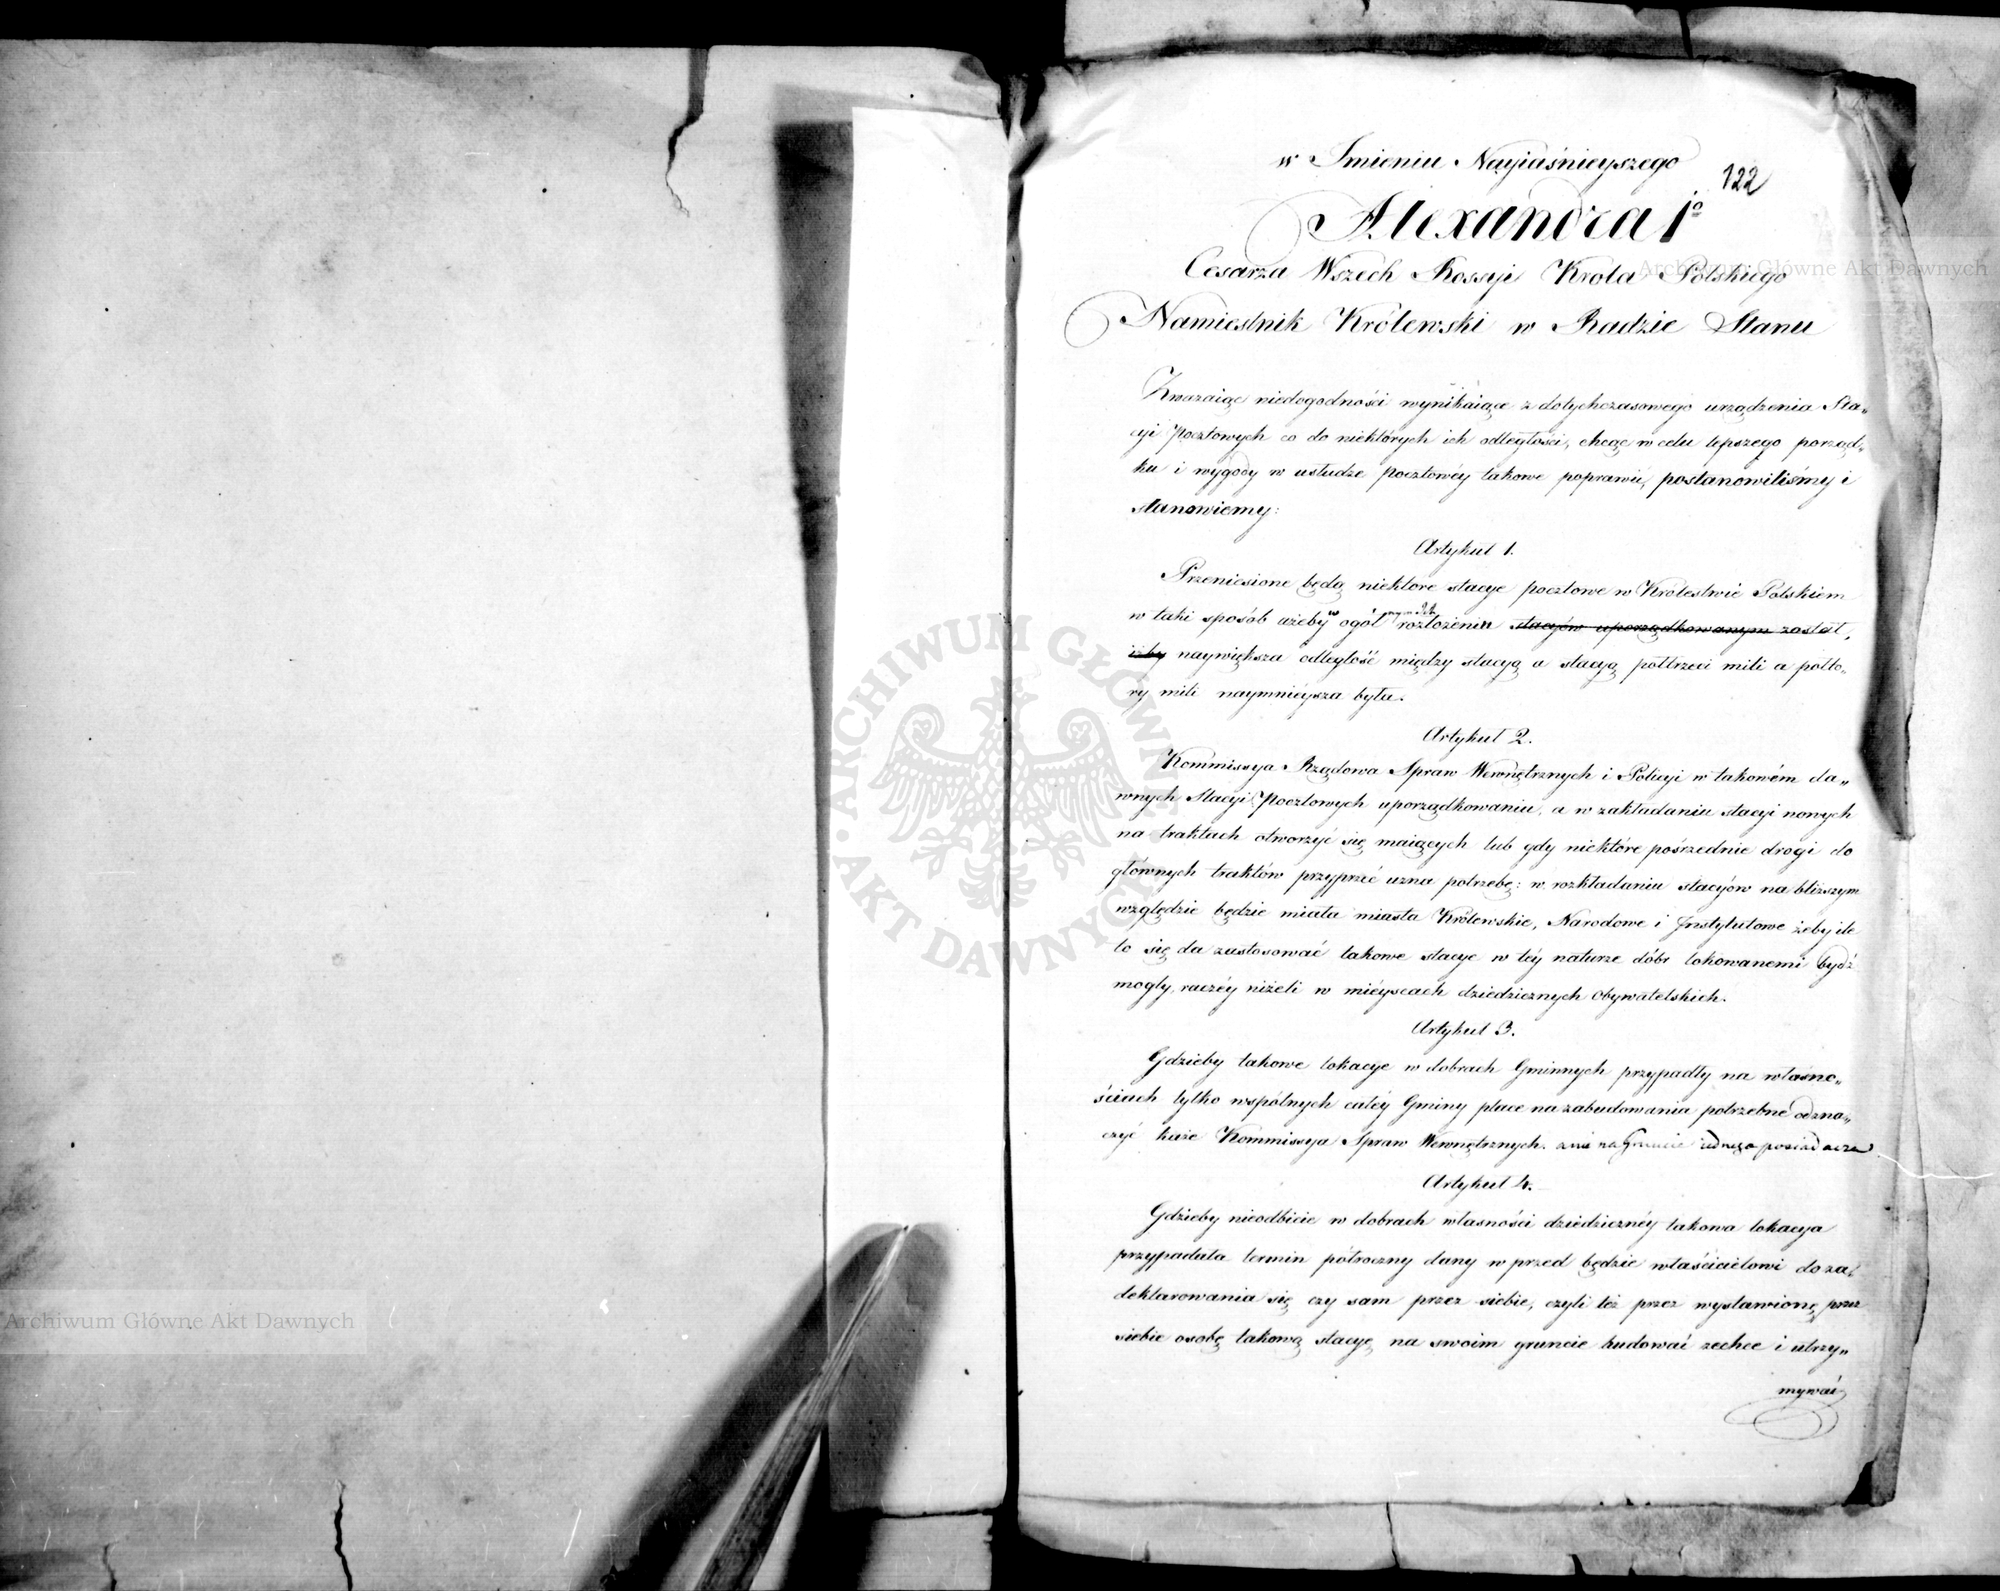 122
w Imieniu Nayiaśnieyszego
Alexandra Iº
Cesarza Wszech Rossyi Krola Polskiego
Namiestnik Królewski w Radzie Stanu
Zważaiąc niedogodności wynikaiące z dotychczasowego urządzenia Sta„
cyi Pocztowych co do niektórych ich odległości, chcąc w celu lepszego porząd„
ku i wygody w usłudze pocztowéy takowe poprawić, postanowiliśmy i
stanowiemy:
Artykuł 1.
Przeniesione będą niektore stacye pocztowe w Krolestwie Polskiem
w taki sposób ażeby w ogól rozłożeniu stacyów uporządkowanym został,
iżby naywiększa odległość między stacyą a stacyą półtrzeci mili a półto„
ry mili naymnieysza była.
Artykuł 2.
Kommissya Rządowa Spraw Wewnętrznych i Policyi w takowém da„
wnych Stacyi Pocztowych uporządkowaniu, a w zakładaniu stacyi nowych
na traktach otworzyć się maiących lub gdy niektóre pośrzednie drogi do
głównych traktów przyprzeć uzna potrzebę: w rozkładaniu stacyów na bliższym
względzie będzie miała miasta Królewskie, Narodowe i Instytutowe żeby ile
to się da zastosować takowe stacye w téy naturze dóbr lokowanemi bydź
mogły, raczéy niżeli w mieyscach dziedzicznych Obywatelskich.
Artykuł 3.
Gdzieby takowe lokacye w dobrach Gminnych przypadły na własno„
ściach tylko wspólnych całéy Gminy place na zabudowania potrzebne odzna„
czyć każe Kommissya Spraw Wewnętrznych. a nie na gruncie iednego posiadacza
Artykuł 4.
Gdzieby nieodbicie w dobrach własności dziedzicznéy takowa lokacya
przypadała termin półroczny dany w przed będzie właścicielowi do za„
deklarowania się czy sam przez siebie, czyli też przez wystawioną przez
siebie osobę takową stacyę na swoim gruncie budować zechce i utrzy„
mywać
Archiwum Główne Akt Dawnych
ARCHIWUM GŁÓWNE AKT DAWNYCH
Archiwum Główne Akt Dawnych